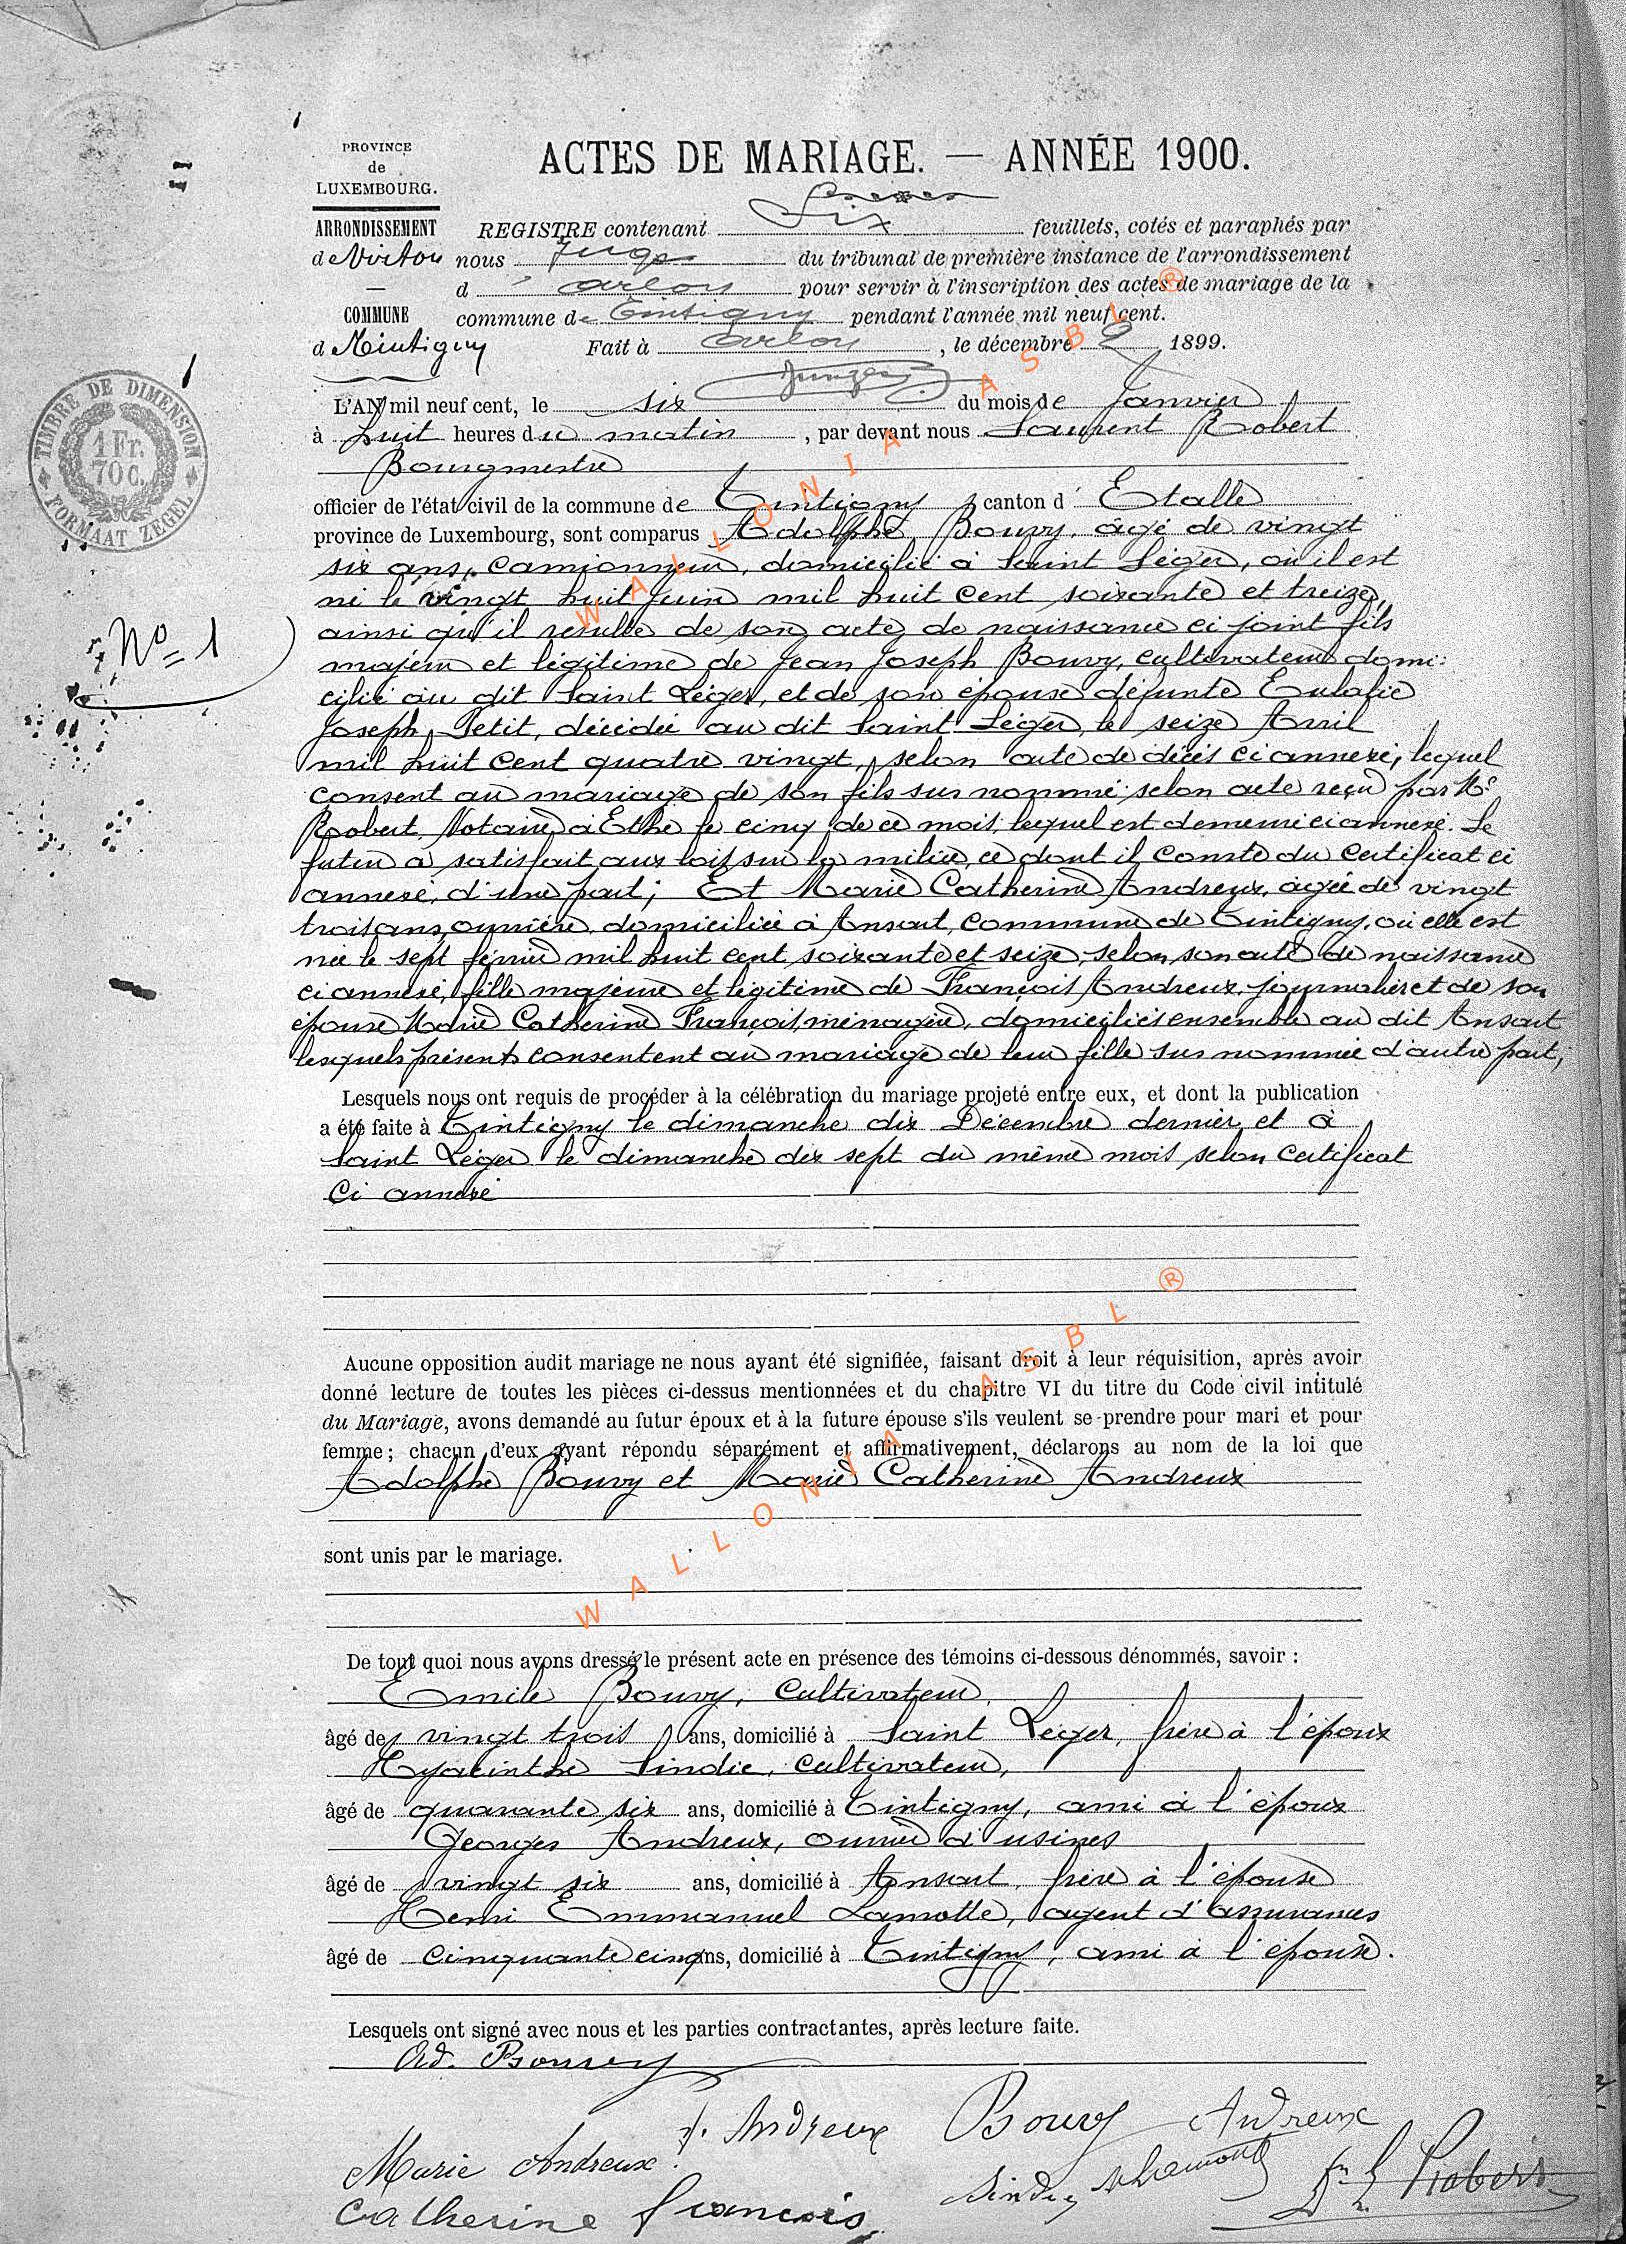 PROVINCE
de
LUXEMBOURG.
ARRONDISSEMENT
de Virton
COMMUNE
de Tintigny
ACTES DE MARIAGE. — ANNÉE 1900.
REGISTRE contenant Six feuillets, cotés et paraphés par
nous Juge du tribunal de première instance de l'arrondissement
d'Arlon pour servir à l'inscription des actes de mariage de la
commune de Tintigny pendant l'année mil neuf cent.
Fait à Arlon, le décembre 2 1899.
TIMBRE DE DIMENSION
1 Fr.
70 C.
FORMAAT ZEGEL
L'AN mil neuf cent, le six du mois de Janvier
à huit heures du matin, par devant nous Laurent Robert
Bourgmestre
officier de l'état civil de la commune de Tintigny, canton d'Etalle
province de Luxembourg, sont comparus Adolphe Bouvy, âgé de vingt
six ans, camionneur, domicilié à Saint Léger, où il est
né le vingt huit Juin mil huit cent soixante et treize,
ainsi qu'il résulte de son acte de naissance ci joint fils
majeur et légitime de Jean Joseph Bouvy, cultivateur domi-
cilié au dit Saint Léger, et de son épouse défunte Eulalie
Joseph Petit, décédée au dit Saint Léger, le seize Avril
mil huit cent quatre vingt, selon acte de décès ci annexé, lequel
consent au mariage de son fils sus nommé selon acte reçu par Me
Robert, Notaire à Ethe le cinq de ce mois, lequel est demeuré ci annexé. Le
futur a satisfait aux lois sur la milice, ce dont il conste du certificat ci
annexé, d'une part; Et Marie Catherine Andreux, âgée de vingt
trois ans, ouvrière, domiciliée à Ansart, commune de Tintigny, où elle est
née le sept février mil huit cent soixante et seize, selon son acte de naissance
ci annexé, fille majeure et légitime de François Andreux, journalier et de son
épouse Marie Catherine François, ménagère, domiciliés ensemble au dit Ansart
lesquels présents consentent au mariage de leur fille sus nommée d'autre part;
No = 1
Lesquels nous ont requis de procéder à la célébration du mariage projeté entre eux, et dont la publication
a été faite à Tintigny le dimanche dix Décembre dernier et à
Saint Léger le dimanche dix sept du même mois selon certificat
ci annexé
Aucune opposition audit mariage ne nous ayant été signifiée, faisant droit à leur réquisition, après avoir
donné lecture de toutes les pièces ci-dessus mentionnées et du chapitre VI du titre du Code civil intitulé
du Mariage, avons demandé au futur époux et à la future épouse s'ils veulent se prendre pour mari et pour
femme; chacun d'eux ayant répondu séparément et affirmativement, déclarons au nom de la loi que
Adolphe Bouvy et Marie Catherine Andreux
sont unis par le mariage.
De tout quoi nous avons dressé le présent acte en présence des témoins ci-dessous dénommés, savoir :
Emile Bouvy, cultivateur,
âgé de vingt trois ans, domicilié à Saint Léger, frère à l'époux
Hyacinthe Sindic, cultivateur,
âgé de quarante six ans, domicilié à Tintigny, ami à l'époux
Georges Andreux, ouvrier d'usines
âgé de vingt six ans, domicilié à Ansart, frère à l'épouse
Henri Emmanuel Lamotte, agent d'assurances
âgé de cinquante cinq ans, domicilié à Tintigny, ami à l'épouse.
Lesquels ont signé avec nous et les parties contractantes, après lecture faite.
Ad. Bouvy
f. Andreux Bouvy Andreux
Marie Andreux Sindic Lamotte L Robert
Catherine francois
WALLONIA ASBL ®
WALLONIA ASBL ®